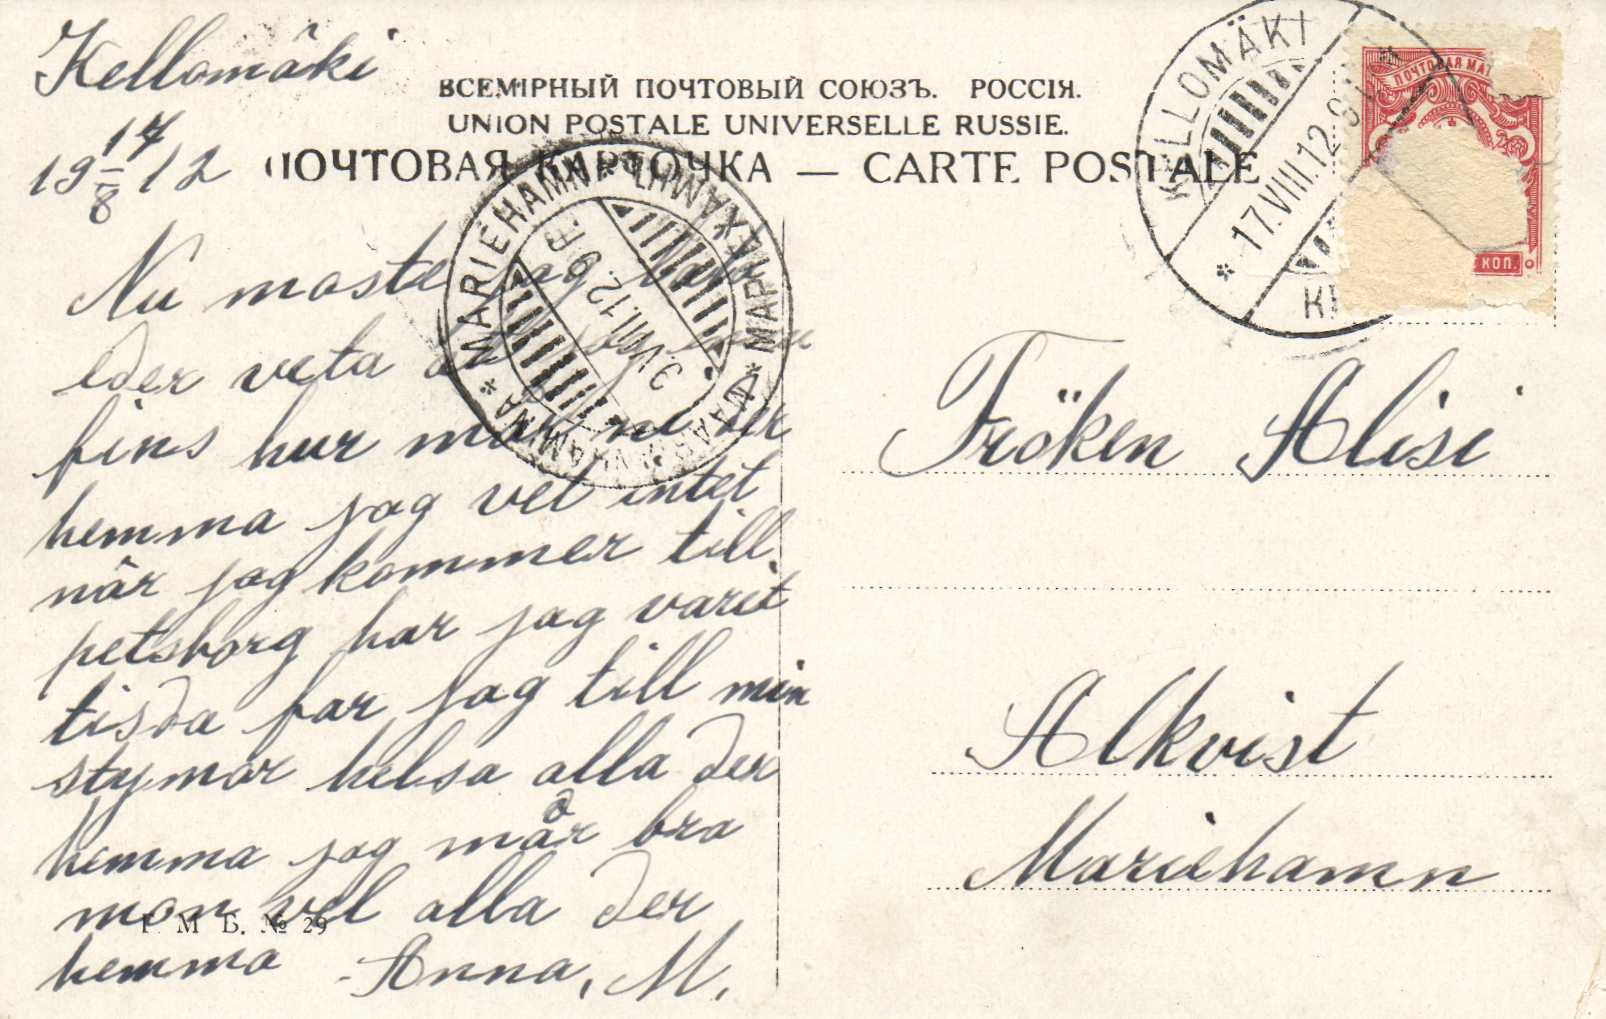 Kellomäki
19 17/8 12
ВСЕМІРНЫЙ ПОЧТОВЫЙ СОЮЗЪ. РОССІЯ.
UNION POSTALE UNIVERSELLE RUSSIE.
ПОЧТОВАЯ КАРТОЧКА — CARTE POSTALE
KELLOMÄKI
17.VIII.12
ПОЧТОВАЯ МА
КОП.
MARIEHAMN * МАРІЕХАМНЪ * MAARIANHAMINA *
VIII.12
Nu moste jag
eder veta
fins hur mår ni der
hemma jag vet intet
når jag kommer till
petsborg har jag varit
tisda far jag till min
stymor helsa alla der
hemma jag mår bra
mon vel alla der
hemma Anna, M.
Г. М. Б. № 29
Fröken Alisi
Alkvist
Mariehamn